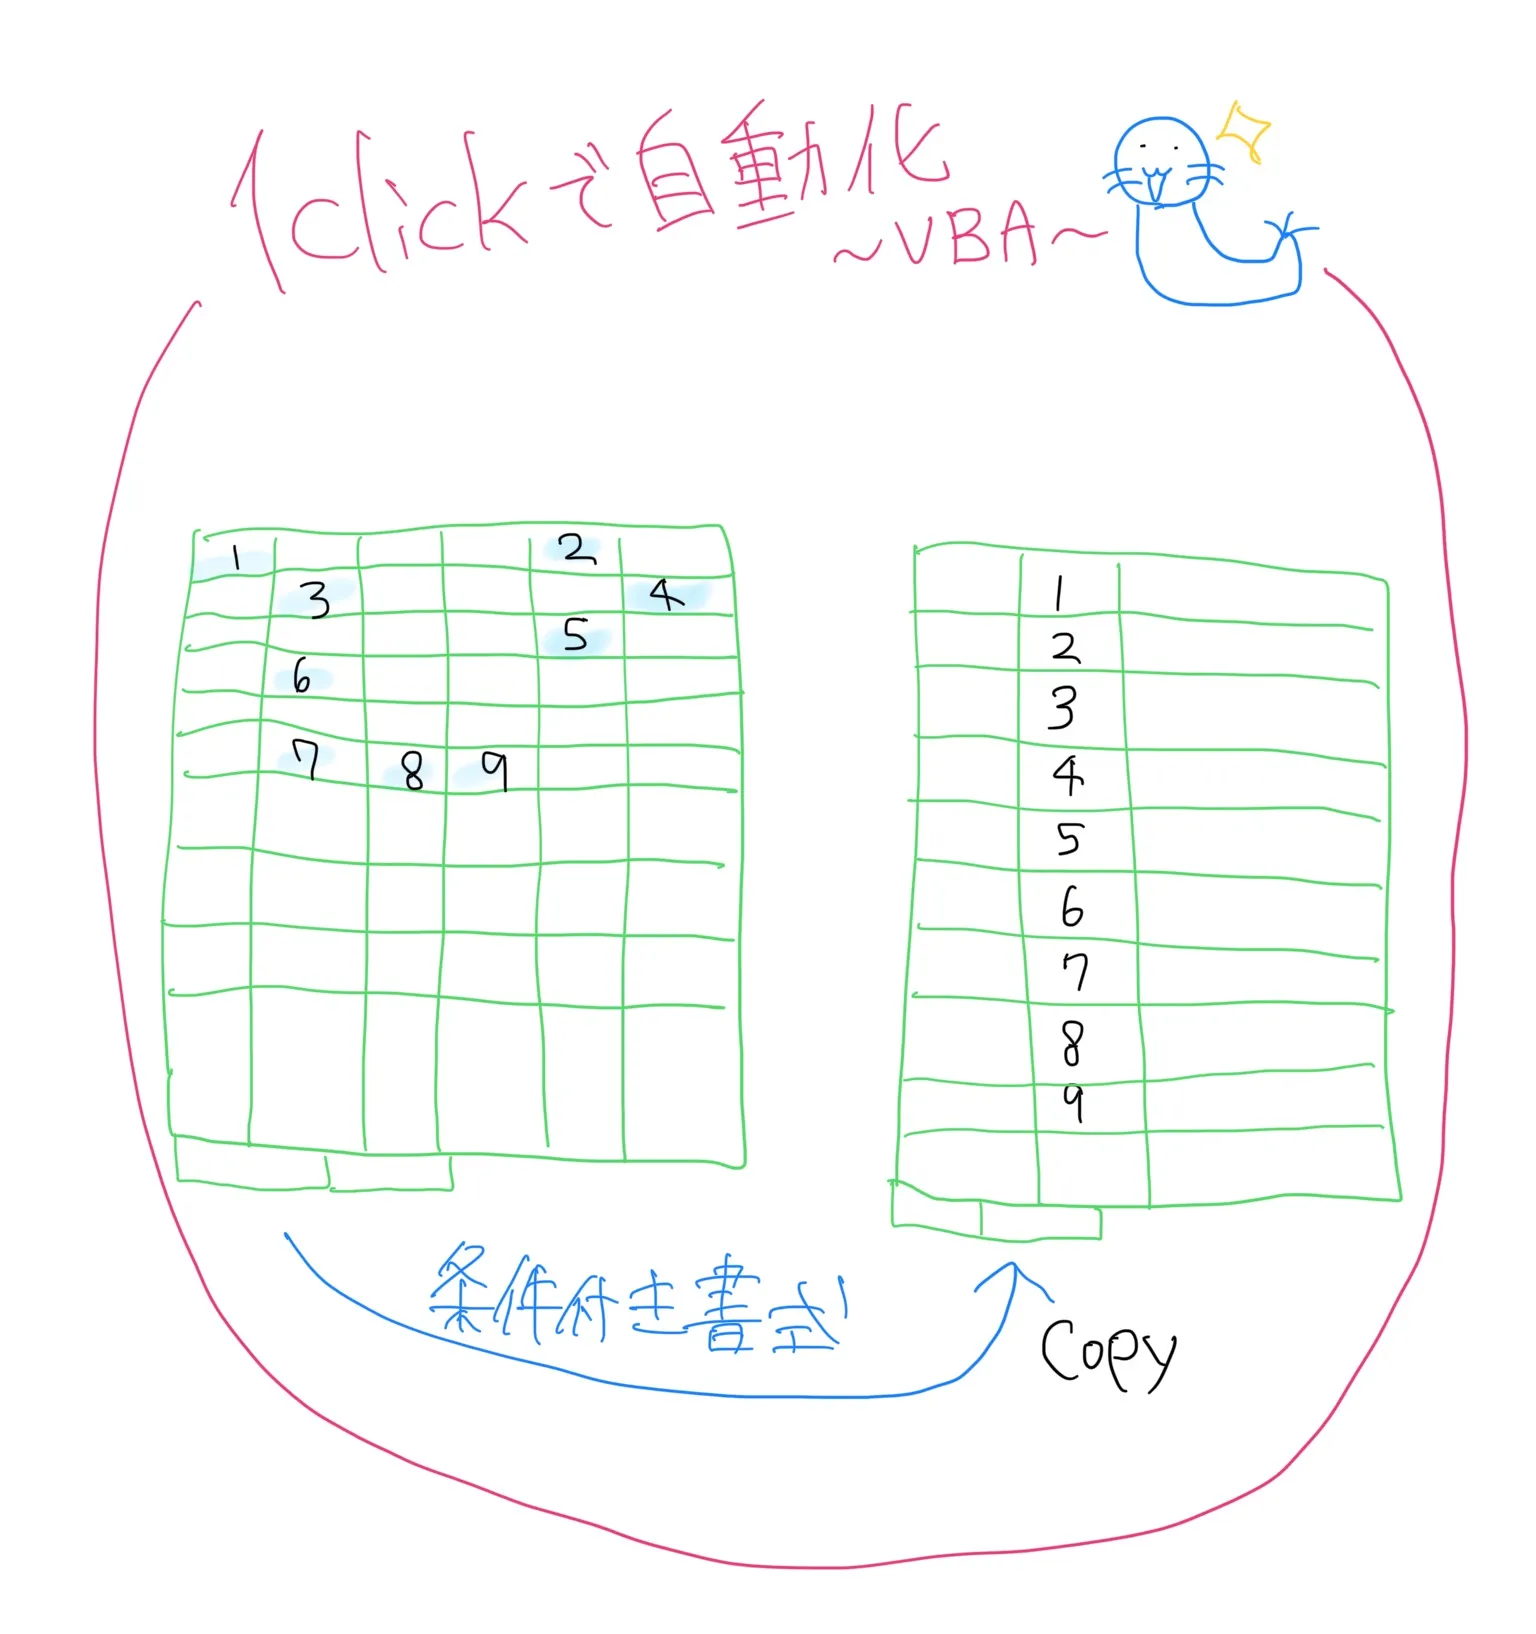 1clickで自動化
～VBA～
1 2
3 4
5
6
7 8 9
1
2
3
4
5
6
7
8
9
条件付き書式
Copy